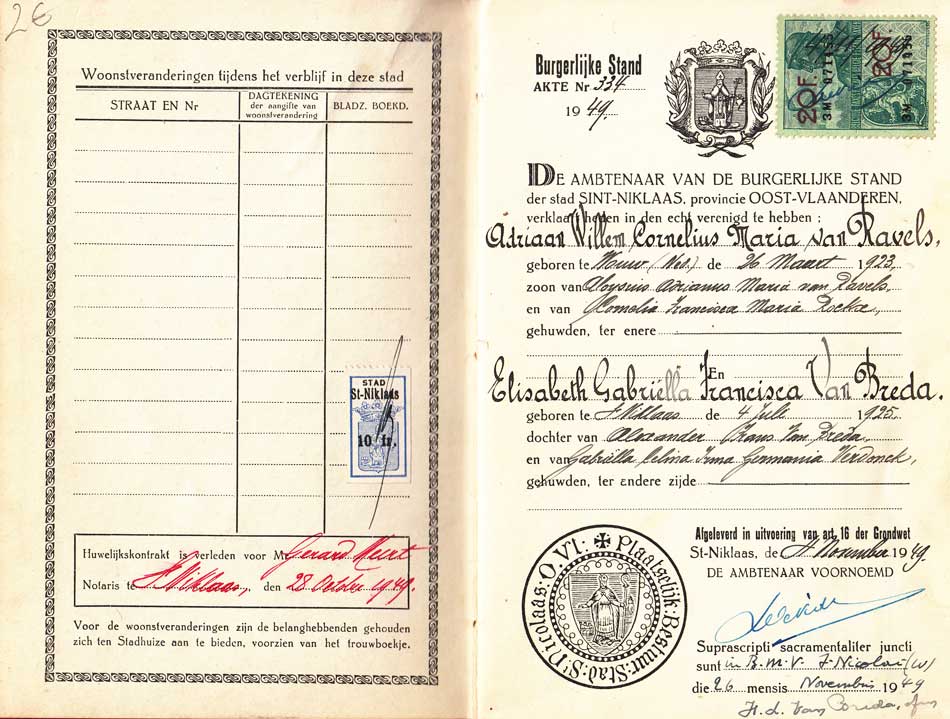 2€
Woonstveranderingen tijdens het verblijf in deze stad
STRAAT EN Nr
DAGTEKENING
der aangifte van
woonstverandering
BLADZ. BOEKD.
STAD
St-Niklaas
10 fr.
Huwelijkskontrakt is verleden voor Mr Gerard Meert
Notaris te St Niklaas, den 28 October 1949.
Voor de woonstveranderingen zijn de belanghebbenden gehouden
zich ten Stadhuize aan te bieden, voorzien van het trouwboekje.
Burgerlijke Stand
AKTE Nr 334
1949.
20F.
20F
DE AMBTENAAR VAN DE BURGERLIJKE STAND
der stad SINT-NIKLAAS, provincie OOST-VLAANDEREN,
verklaart heden in den echt verenigd te hebben :
Adriaan Willem Cornelius Maria van Ravels,
geboren te Wouw (Ned.) de 26 Maart 1923,
zoon van Aloysius Adrianus Maria van Ravels,
en van Cornelia Francisca Maria
gehuwden, ter enere
En
Elisabeth Gabriëlla Francisca Van Breda.
geboren te St Niklaas de 4 Juli 1925.
dochter van Alexander Frans Van Breda,
en van Gabriëlla Celina Irma Germania Verdonck,
gehuwden, ter andere zijde
S: Nicolaas: O. Vl: Plaatselijk: Bestuur: Stad:
Afgeleverd in uitvoering van art. 16 der Grondwet
St-Niklaas, de November 1949.
DE AMBTENAAR VOORNOEMD
Suprascripti sacramentaliter juncti
sunt in B.M.V. S. Nicolai (W)
die 26 mensis Novembris 1949
Van Breda,